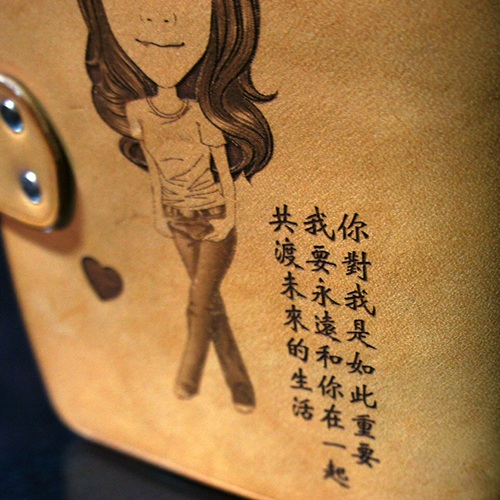 你對我是如此重要
我要永遠和你在一起
共渡未來的生活